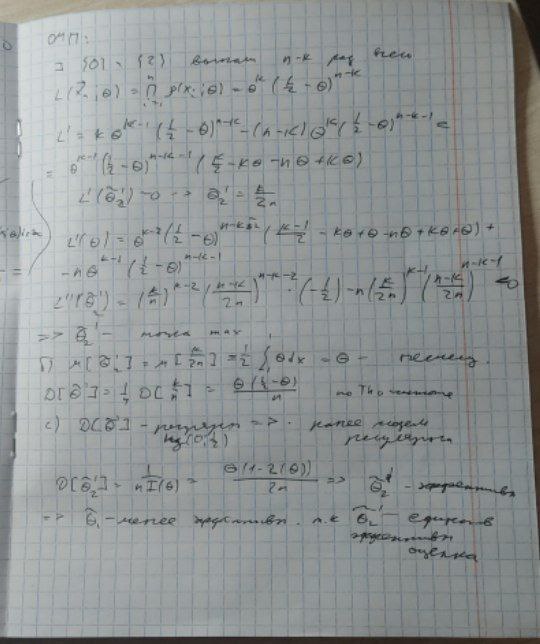 ОМП:
∃ {0} и {2} выпали n-k раз всего
L(x̄ₙ, θ) = ∏ᵢ₌₁ⁿ p(xᵢ; θ) = θ^k (1/2 - θ)^(n-k)
L' = kθ^(k-1) (1/2 - θ)^(n-k) - (n-k) θ^k (1/2 - θ)^(n-k-1) =
= θ^(k-1) (1/2 - θ)^(n-k-1) (k/2 - kθ - nθ + kθ)
L'(θ̃₂') = 0 => θ̃₂' = k/2n
L''(θ) = θ^(k-2) (1/2 - θ)^(n-k-2) (k-1/2 - kθ + θ - nθ + kθ + θ) +
- nθ^(k-1) (1/2 - θ)^(n-k-1)
L''(θ̃') = (k/n)^(k-2) (n-k/2n)^(n-k-2) · (-1/2) - n(k/2n)^(k-1) (n-k/2n)^(n-k-1) <0
=> θ̃₂' - точка max
б) M[θ̃₂'] = M[k/2n] = 1/2 ∫ θ dx = θ - несмещ.
D[θ̃'] = 1/4 D[k/n] = θ(1/2-θ)/n
c) D[θ̃] - регулярн => ранее модель регулярна
на (0, 1/2)
D[θ̃₂'] = 1/nI(θ) = θ(1-2(θ))/2n => θ̃₂' - эффективн
=> θ̃₁ - менее эффективн. т.к θ̃₂' - единств
эффективн
оценка